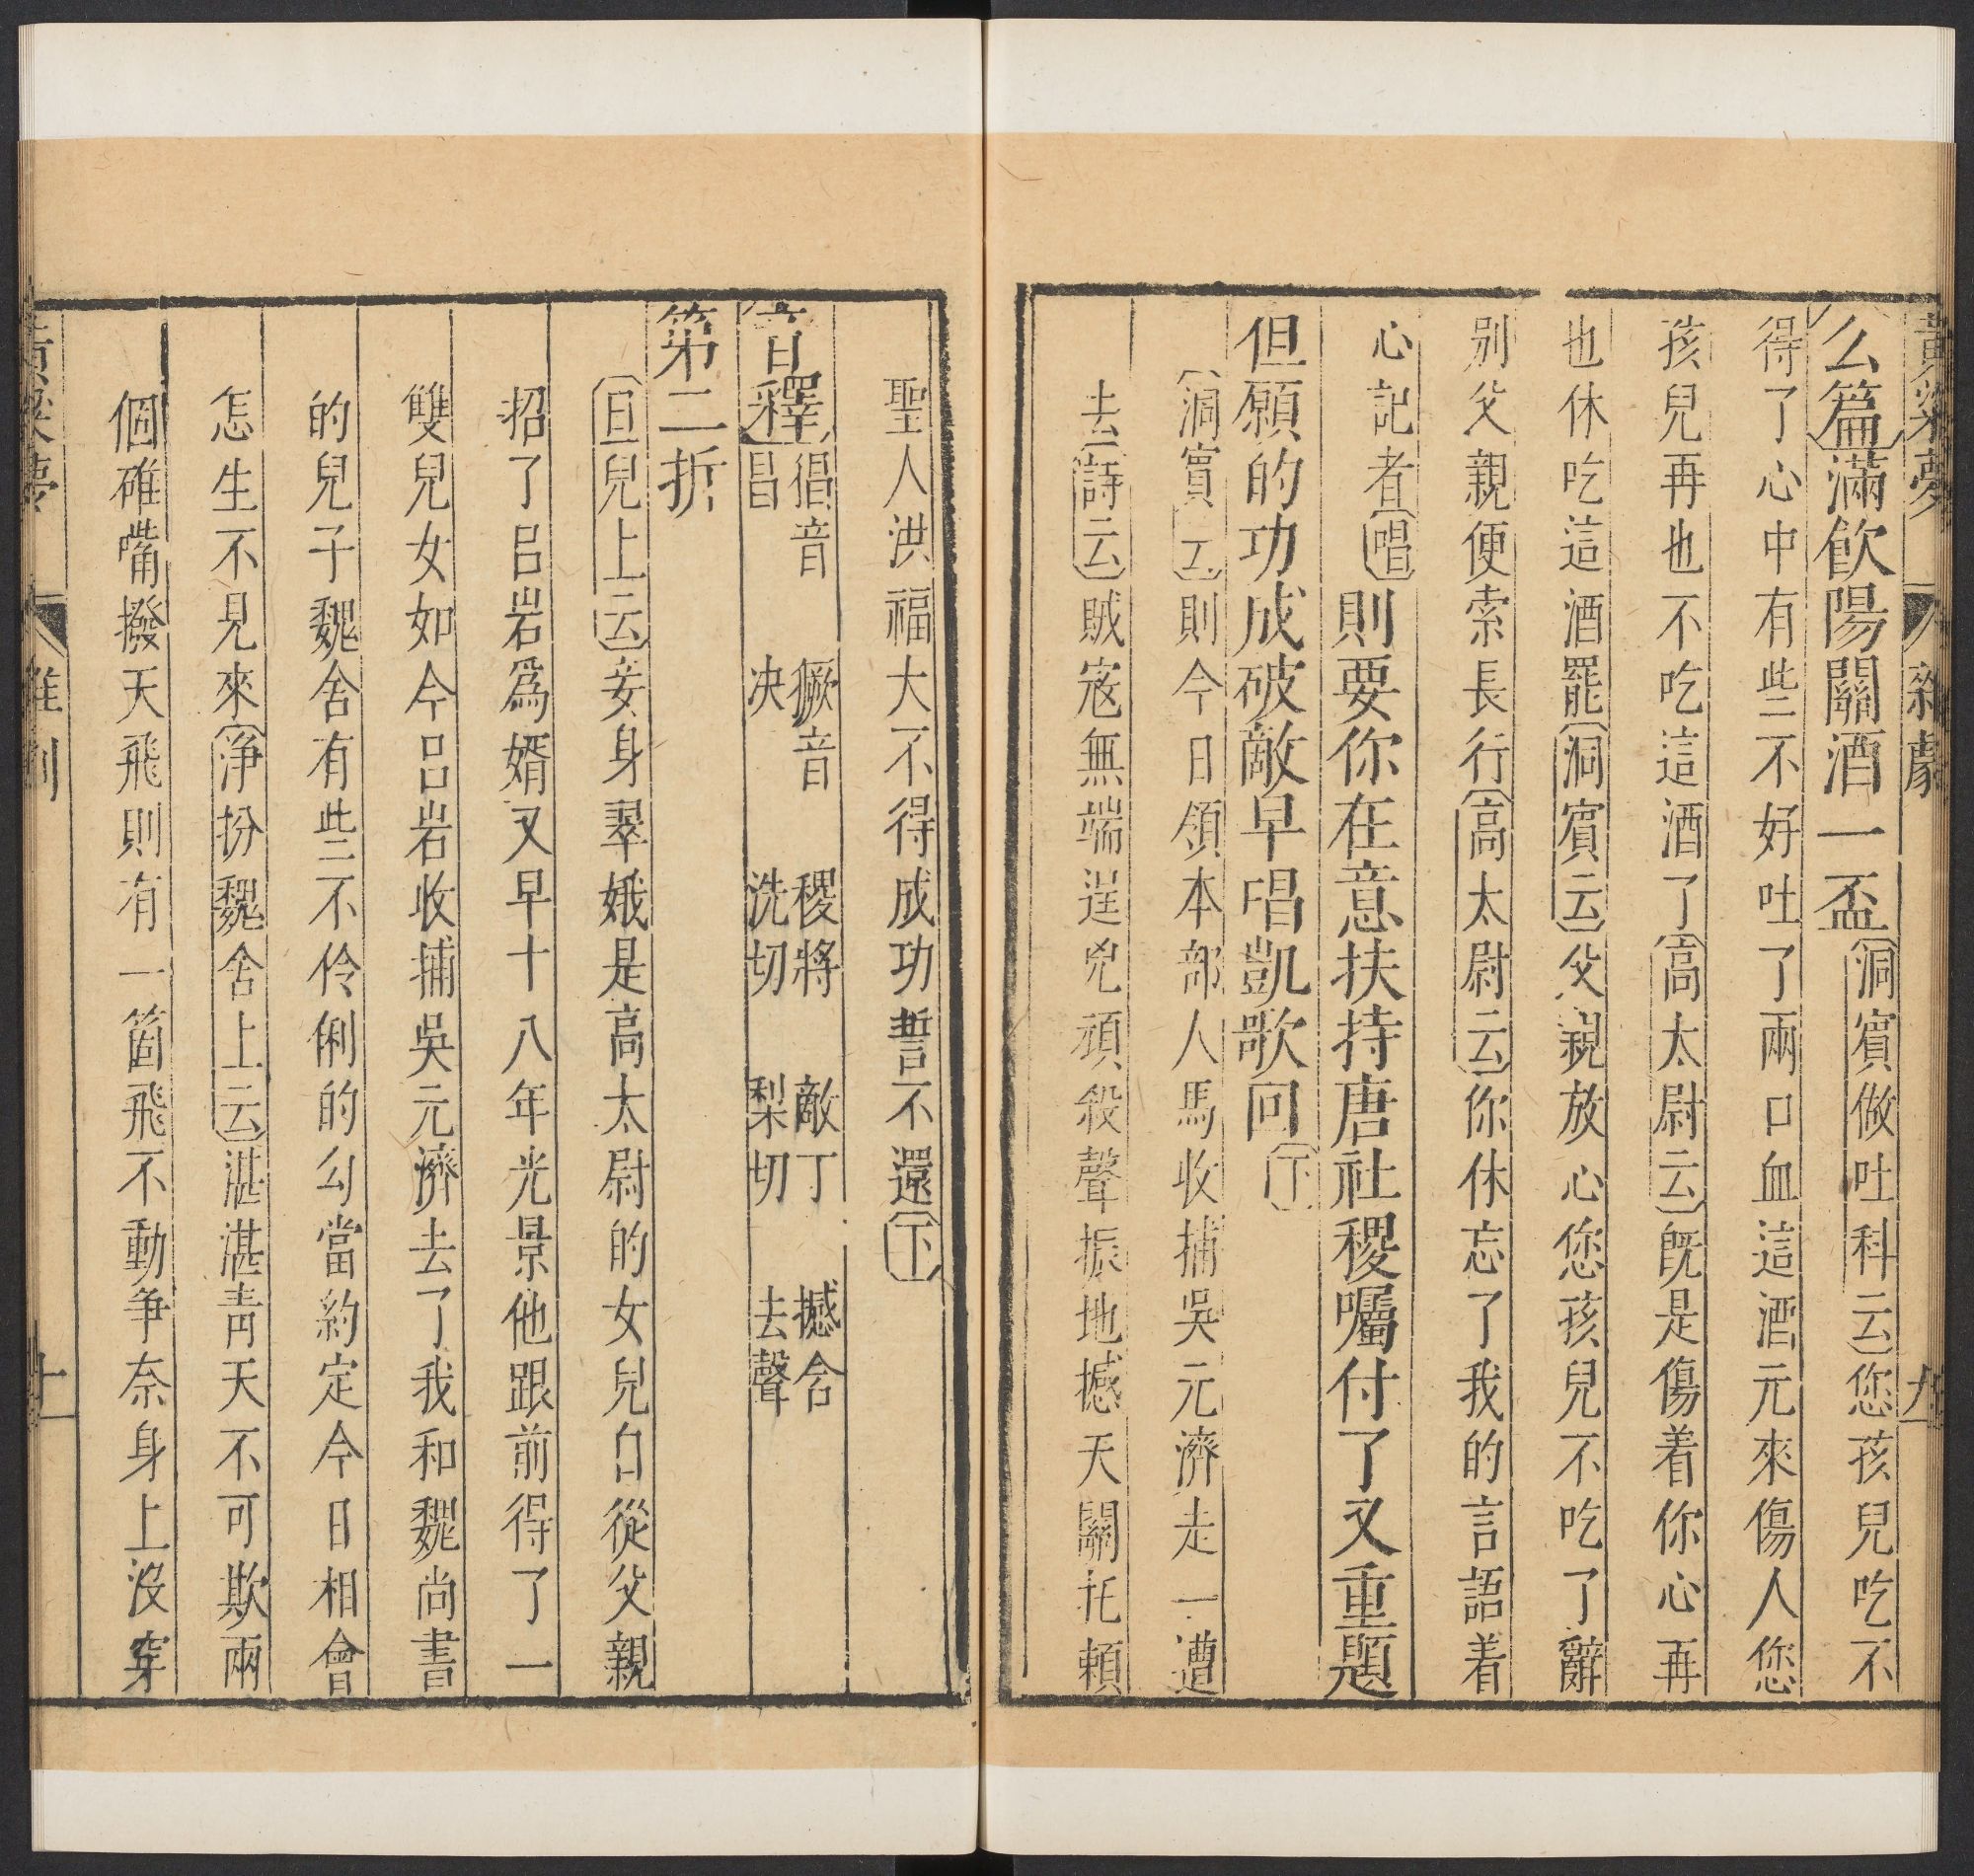 黃粱夢 雜劇 九
么篇滿飲陽關酒一盃洞賓做吐科云您孩兒吃不
得了心中有些不好吐了兩口血這酒元來傷人您
孩兒再也不吃這酒了高太尉云旣是傷着你心再
也休吃這酒罷洞賓云父親放心您孩兒不吃了辭
別父親便索長行高太尉云你休忘了我的言語着
心記者唱則要你在意扶持唐社稷囑付了又重題
但願的功成破敵早唱凱歌回下
洞賓云則今日領本部人馬收捕吳元濟走一遭
去詩云賊寇無端逞兇頑殺聲振地撼天關托賴
聖人洪福大不得成功誓不還下
音釋倡音昌 獗音决 稷將洗切 敵丁梨切 撼含去聲
第二折
旦兒上云妾身翠娥是高太尉的女兒自從父親
招了呂岩爲婿又早十八年光景他跟前得了一
雙兒女如今呂岩收捕吳元濟去了我和魏尚書
的兒子魏舍有些不伶俐的勾當約定今日相會
怎生不見來淨扮魏舍上云湛湛靑天不可欺兩
個碓嘴撥天飛則有一箇飛不動爭奈身上沒穿
黃粱夢 雜劇 十